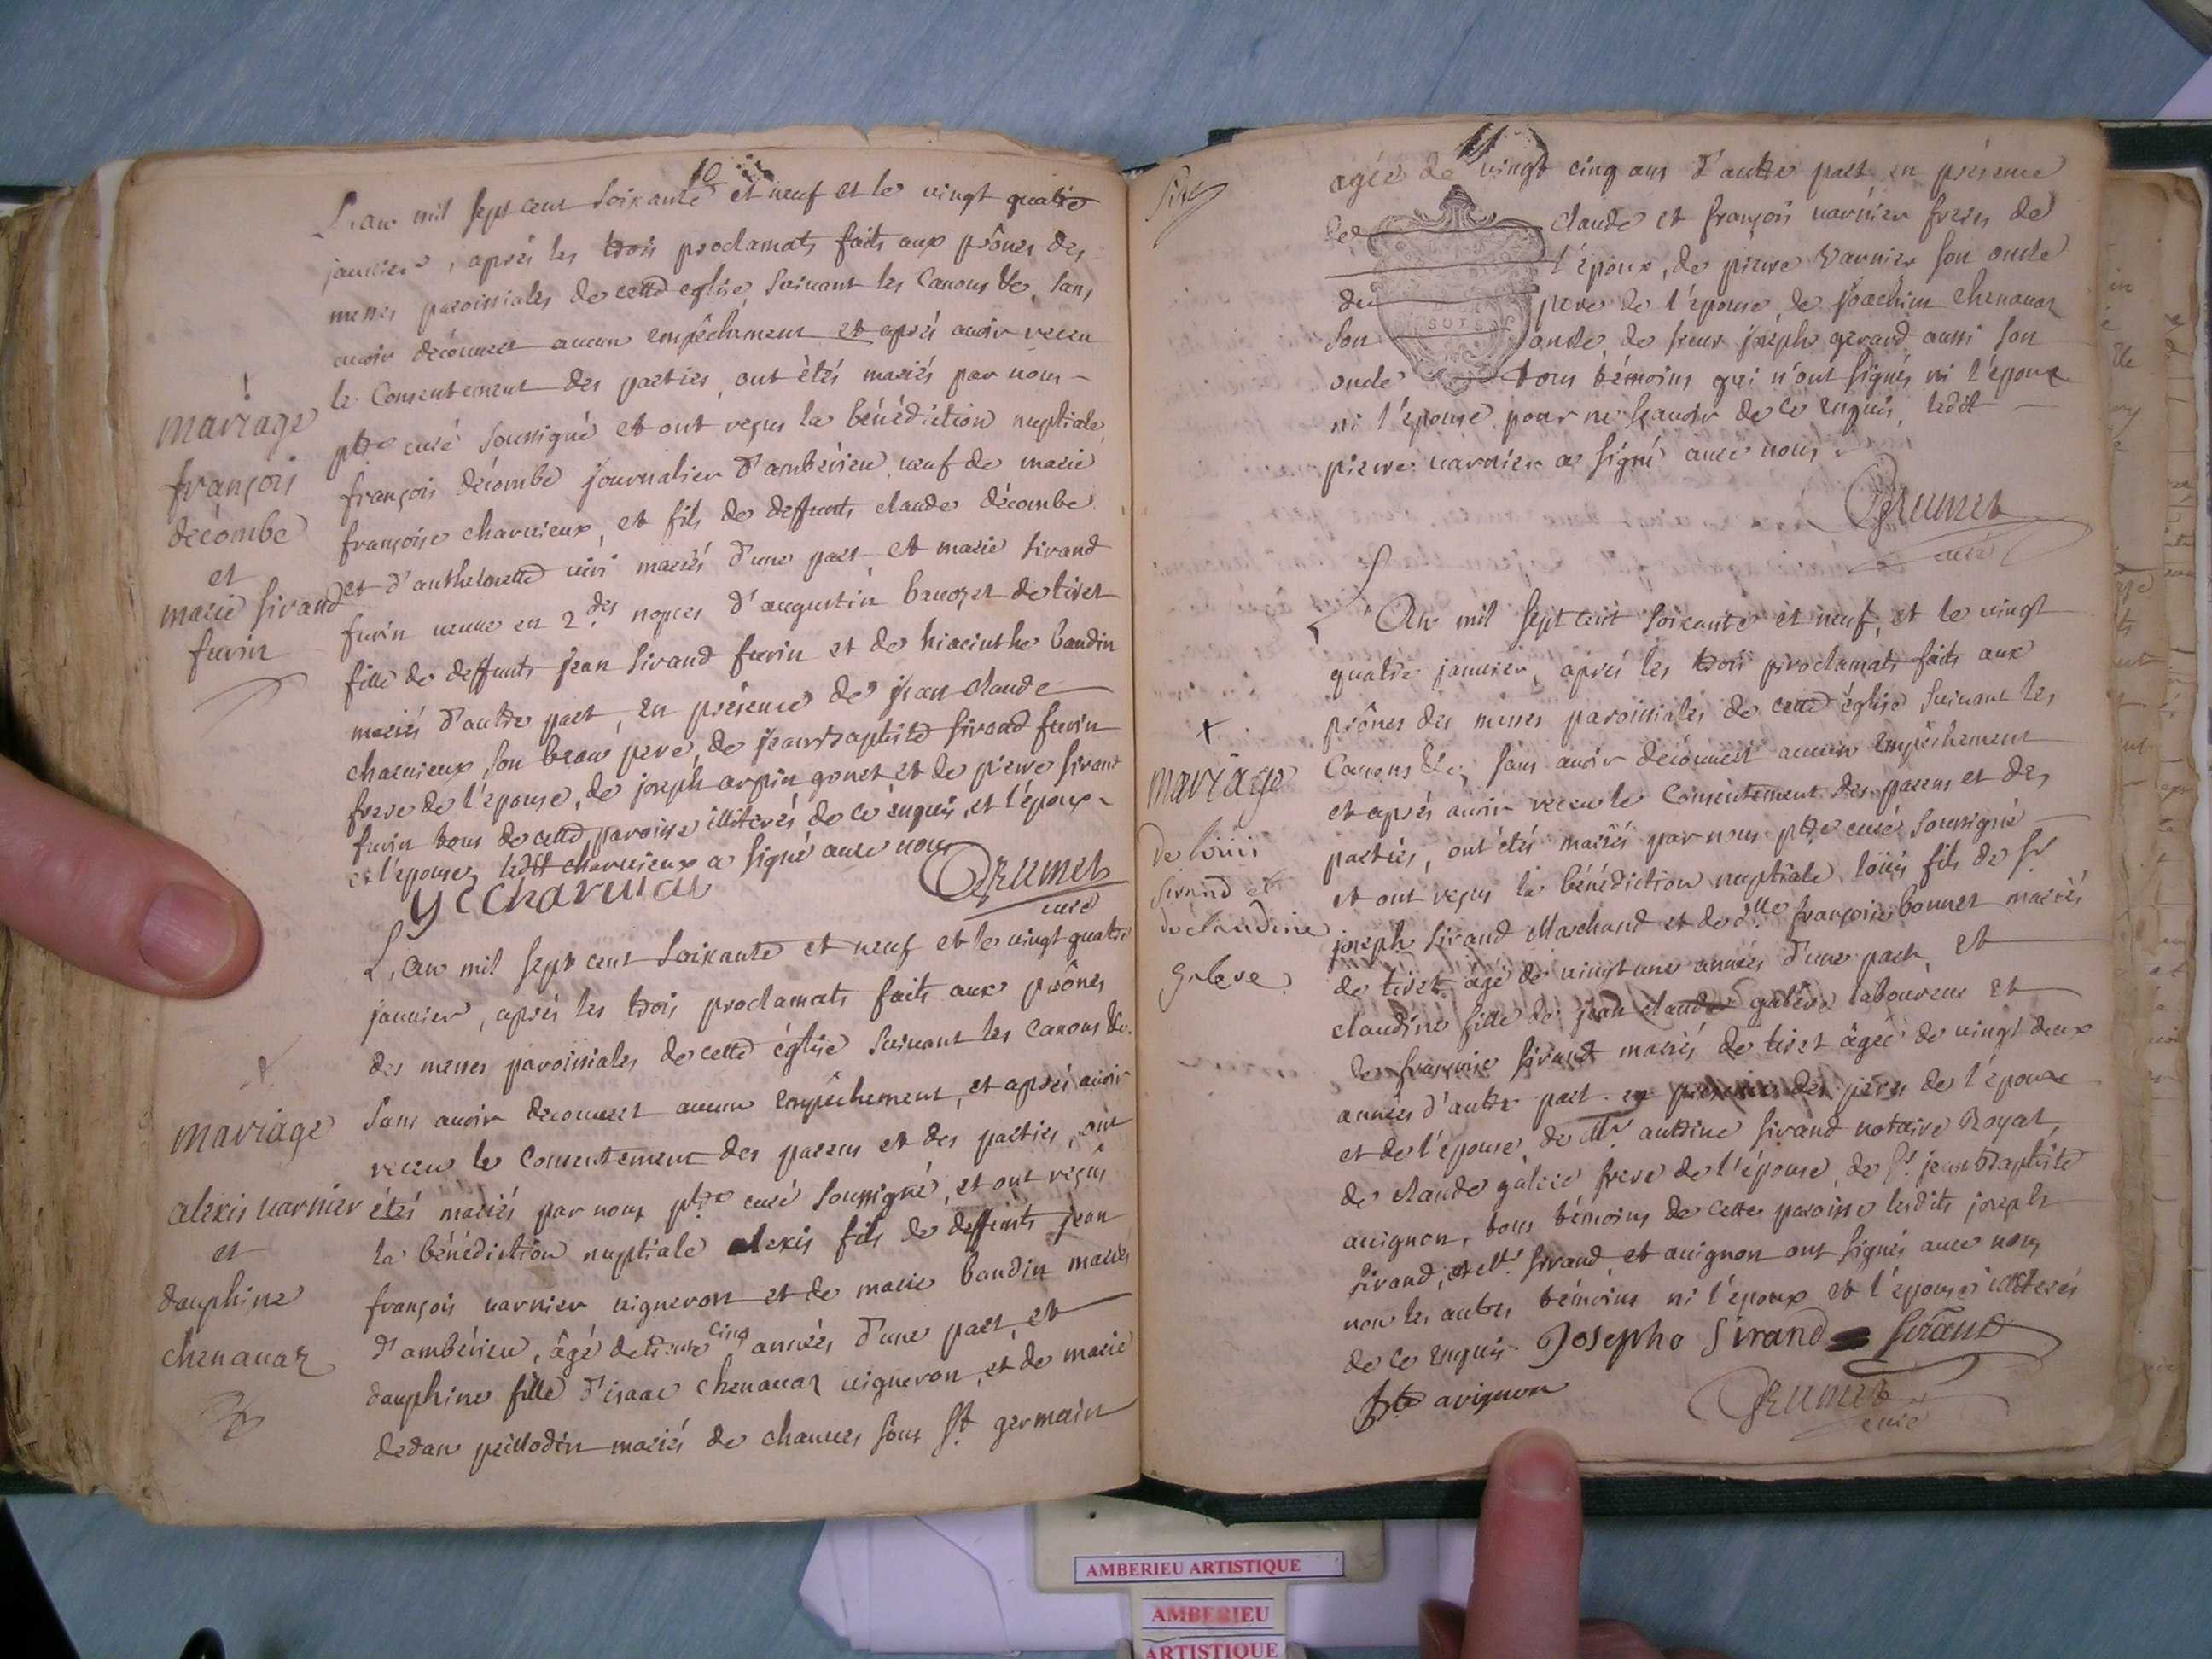 10
L'an mil sept cent soixante et neuf et le vingt quatre
janvier, aprés les trois proclamats faits aux prônes des
messes paroissiales de cette eglise, suivant les Canons &c, sans
avoir découvert aucun empêchement et aprés avoir receu
le Consentement des parties, ont étés mariés par nous
ptre curé soussigné et ont reçus la bénédiction nuptiale
françois décombe journalier d'ambérieu veuf de marie
françoise charvieux, et fils de deffunts claude décombe
et d'anthelmette mariés d'une part, et marie sirand
furin veuve en 2.des nopces d'augustin de tiret
fille de deffunts jean sirand furin et de hiacinthe baudin
mariés d'autre part, en présence de jean claude
charvieux son beau pere, de jean baptiste sirand furin
frere de l'epouse, de joseph arpin gonet et de pierre sirand
furin tous de cette paroisse illiterés de ce enquis, et l'époux
et l'épouse, ledit charvieux a signé avec nous
Grumet
curé
mariage
françois
decombe
et
marie sirand
furin
L'an mil sept cent soixante et neuf et le vingt quatre
janvier, aprés les trois proclamats faits aux prônes
des messes paroissiales de cette église suivant les Canons &c.
sans avoir decouvert aucun empêchement, et aprés avoir
receu le Consentement des parens et des parties, ont
étés mariés par nous ptre curé soussigné, et ont reçus
la bénédiction nuptiale alexis fils de deffunts jean
françois varnier vigneron et de marie baudin mariés
d'ambérieu, âgé de trente cinq années d'une part, et
dauphine fille d'isaac chenavaz vigneron, et de marie
mariés de chaucer sous st. germain
mariage
alexis varnier
et
dauphine
chenavaz
11
agée de vingt cinq ans d'autre part en présence
de claude et françois varnier freres de
l'époux, de pierre varnier son oncle
du pere de l'épouse, de joachim chenavaz
son oncle de sieur joseph gerard aussi son
oncle tous témoins qui n'ont signés ni l'époux
ni l'épouse pour ne sçavoir de ce enquis, ledit
pierre varnier a signé avec nous.
Grumet
curé
L'An mil sept cent soixante et neuf, et le vingt
quatre janvier, aprés les trois proclamats faits aux
prônes des messes paroissiales de cette église suivant les
Canons &c, sans avoir découvert aucun empêchement
et aprés avoir receu le Consentement des parens et des
parties, ont étés mariés par nous ptre curé soussigné
et ont reçus la bénédiction nuptiale, loüis fils de sr
joseph sirand Marchand et de dlle françoise bonnet mariés
de tiret, âgé de vingt une années d'une part, et
claudine fille de jean claude galere laboureur et
de françoise sirand mariés de tiret âgée de vingt deux
années d'autre part en présence des peres de l'époux
et de l'épouse, de Mr. antoine sirand notaire Royal,
de claude galere frere de l'épouse, de Sr. jean Baptiste
avignon, tous témoins de cette paroisse lesdits joseph
sirand, et Mr. sirand, et avignon ont signés avec nous
non les autres témoins ni l'époux et l'épouse illiterés
de ce enquis. Josephe Sirand Sirand
Bte avignon
Grumet
curé
mariage
de loüis
sirand et
de claudine
galere
AMBERIEU ARTISTIQUE
AMBERIEU
ARTISTIQUE